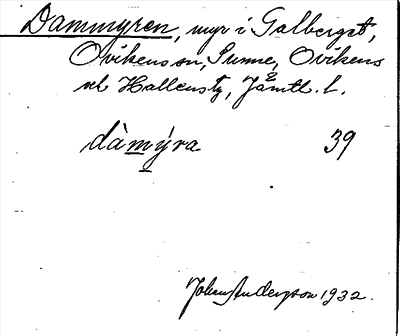 Dammyren, myr i Galberget,
Ovikens sn, Sunne, Ovikens
och Hallens tg, Jämtl. l.
2
dàmýra 39
John Anderson 1932.